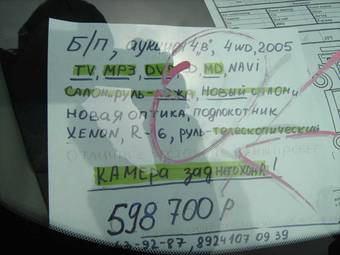 Б/П, аукцион "4,В", 4WD, 2005
TV, MP3, DVD, CD, MD, NAVi
Салон, руль - кожа, Новый салон,
новая оптика, подлокотник
XENON, R-16, руль-телескопический
КАМЕРА заднегохода!
598 700 р
62-92-87, 8924107 09 39